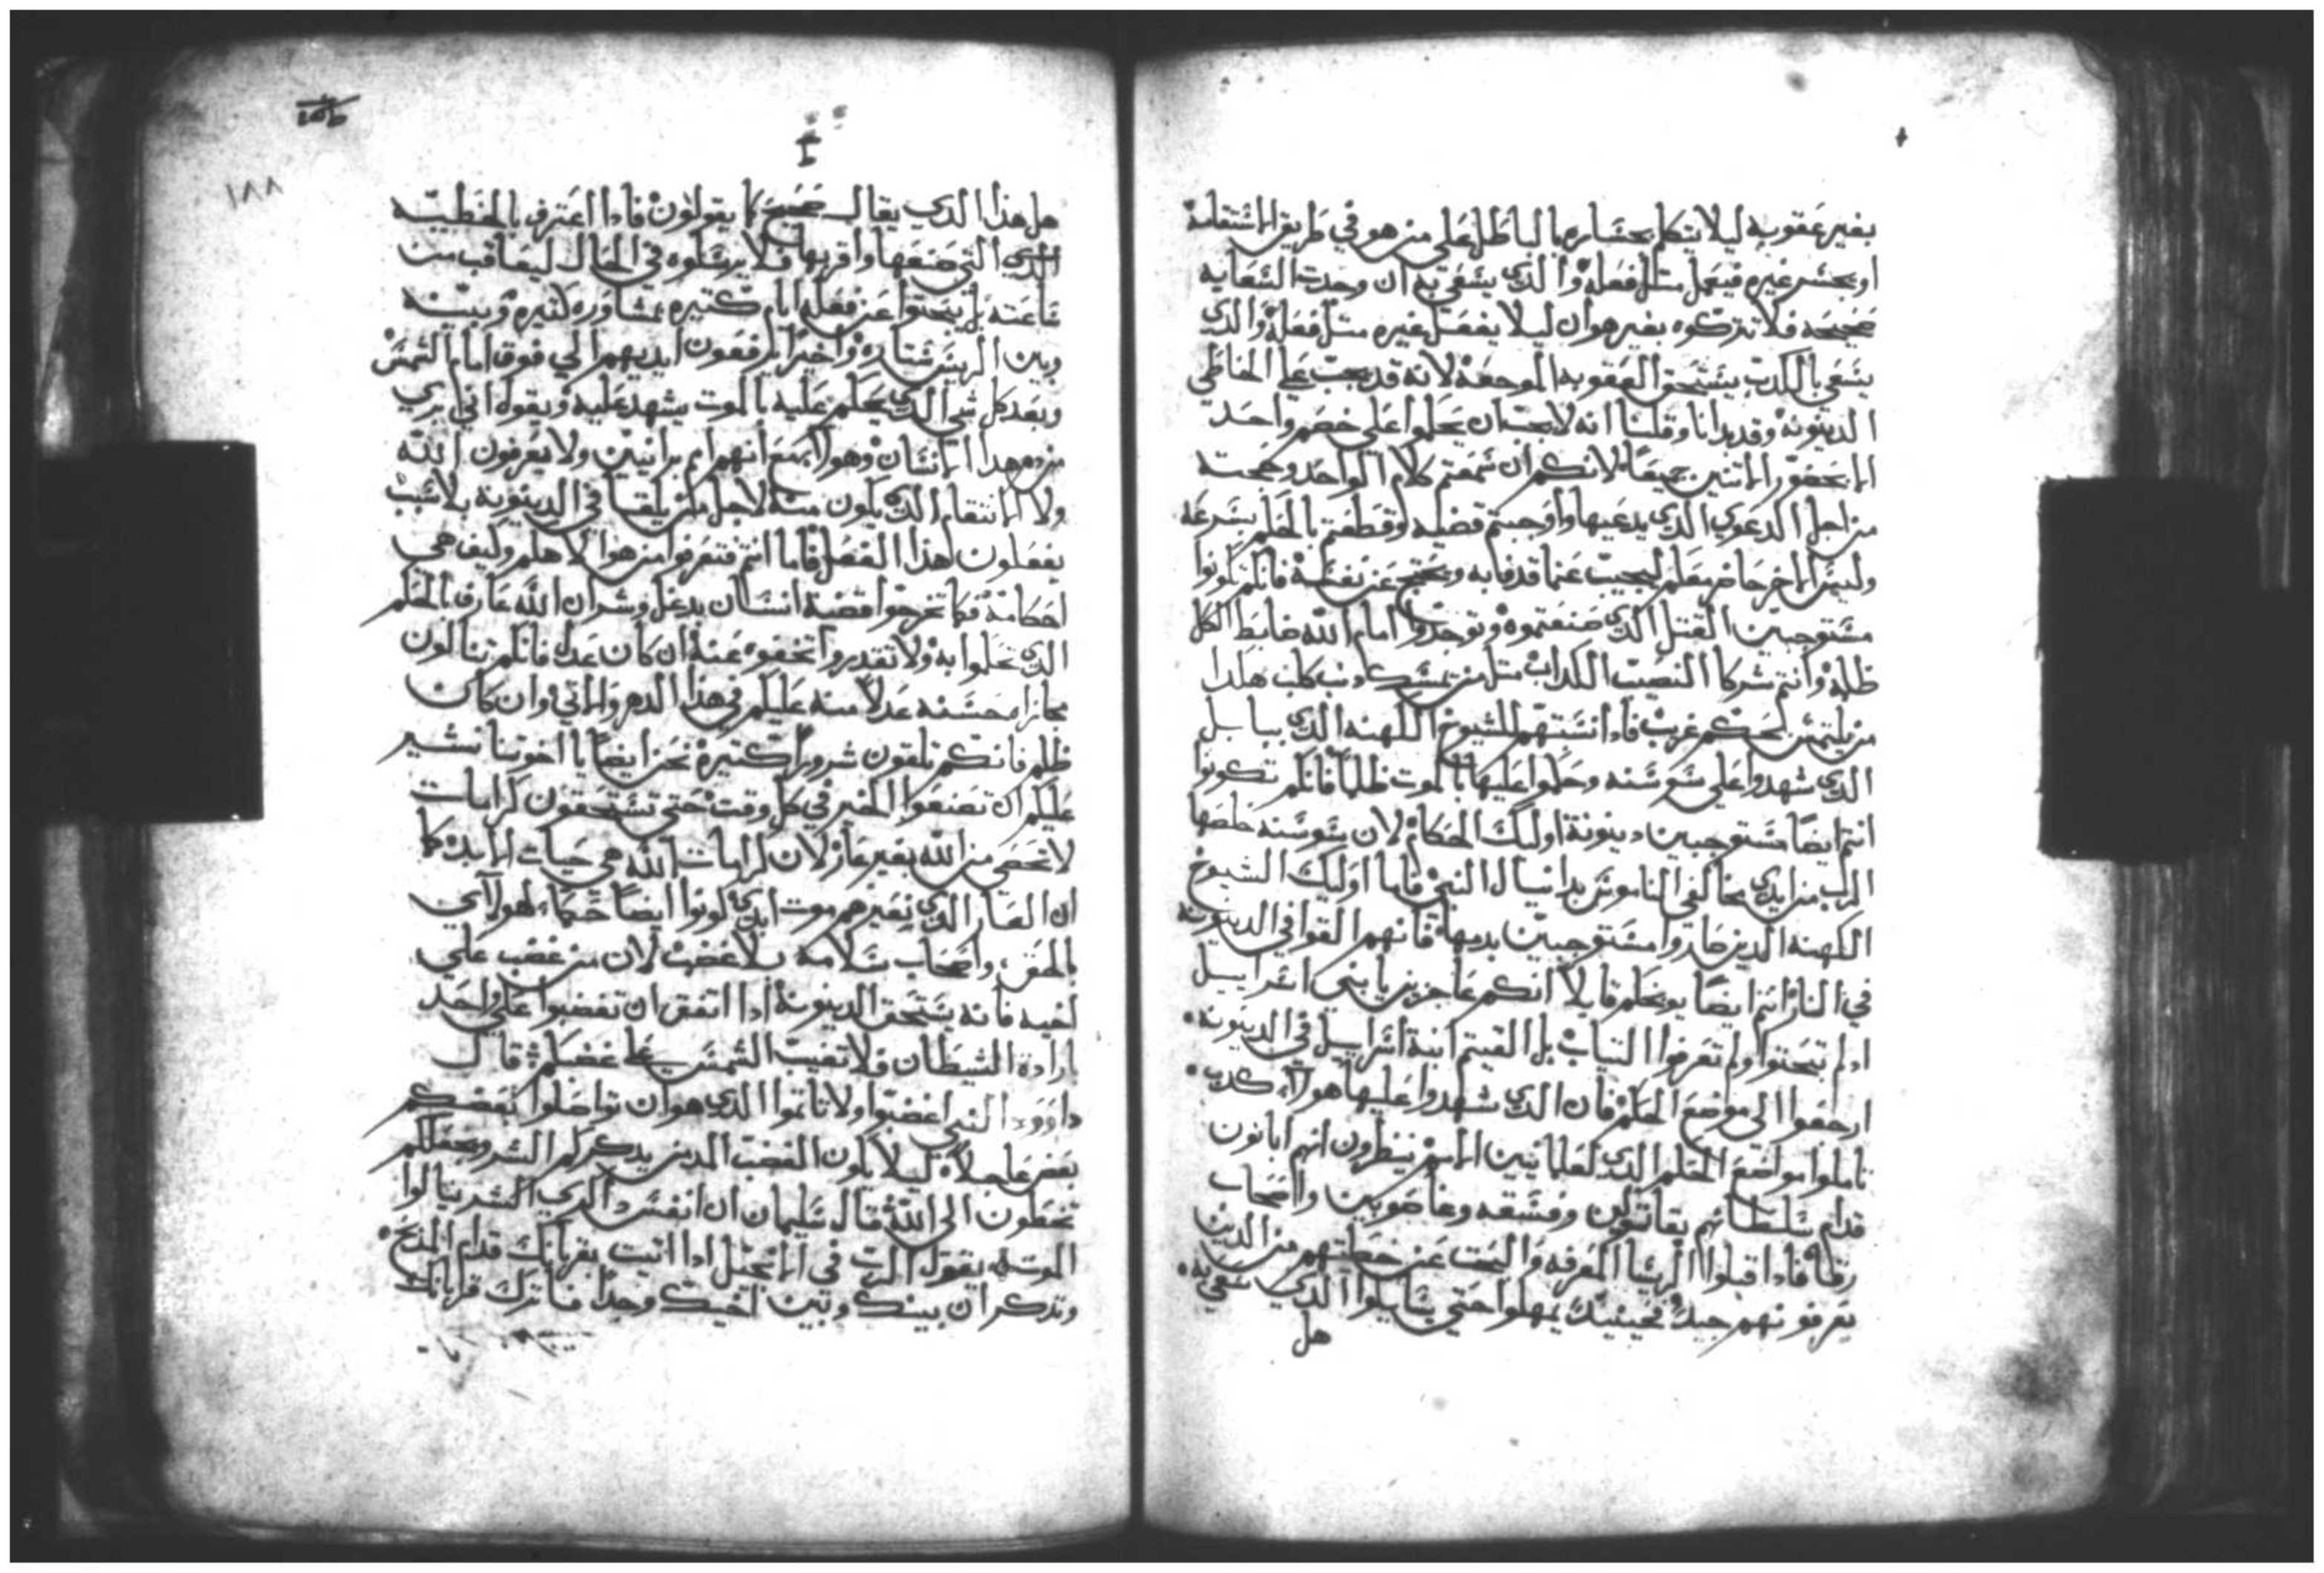 بغير عقوبه ليلا يتكلم بحساره بالباطل على من هو في طريق الاستقامة
او يجسر غيره فيعمل مثل فعله والدي يسعى به ان وجدت السعايه
صحيحه فلا تتركوه بغير هوان ليلا يفعل غيره مثل فعله والدي
يسعى بالكدب يستحق العقوبه الموجعة لانه قد يجب على الخاطي
الدينونة وقد بدانا وقلنا انه لا يجب ان يحكموا على خصم واحد
الا بحضور الاتنين جميعاً لانكم ان سمعتم كلام الواحد وحجته
من اجل الدعوي الدي يدعيها واوجبتم قضيه وقطعتم بالحكم بسرعة
وليس الاخر حاضر معكم ليجيب عما قدف به ويحتج عن نفسه فانكم تكونوا
مستوجبين القتل الدي صنعتموه وتوجدوا امام الله ضابط الكل
ظلمه وانتم شركا النصيب الكداب مثل من يمسك دنب كلب هكدا
من يلتمس لحكم غريب فادا تشبهتم للشيوخ الكهنه الدي ببابل
الدي شهدوا على سوسنه وحكموا عليها بالموت ظلماً فانكم تكونوا
انتم ايضاً مستوجبين دينونة اوليك الحكام لان سوسنه خلصها
الرب من ايدي مخالفي الناموس بدانيال النبي فاما اوليك الشيوخ
الكهنه الدين صاروا مستوجبين بدمها فانهم القوا في الدينونه
في النار انتم ايضاً يوبخكم قايلا انكم عاجزين يا بني اسراييل
اد لم تبحتوا ولم تعرفوا التياب بل القيتم ابنة اسراييل في الدينونه
ارجعوا الى موضع الحكم فان الدي شهدوا عليها هولاء كدب
تاملوا مواضع الحكم الدي لعلمانيين الامم ينظرون انهم اباتون
قدام سلطانهم بقاتولين وفسقه وغاصوبين واصحاب
رقا فادا قبلوا الريسا المعرفه والبحت عن خطيتهم من الدين
يعرفونهم جيداً فحينيد يمهلوا حتى يسايلوا الدي سعي به
هل
١٨٨
هل هذا الدي يقال صحيح كما يقولون فادا اعترف بالخطيه
الدي التي صنعها واقر بها فلا يرسلوه في الحال ليعاقب من
ساعته بل يبحتوا عن فعله ايام كتيره بمشاوره كتيره وبينه
وبين الريس ستاره واخيراً يرفعون ايديهم الي فوق امام الشمس
وبعد كل شي الدي يحكم عليه بالموت يشهد عليه ويقول اني بري
من دم هدا الانسان وهولا جميع انهم امم برانيين ولا يعرفون الله
ولا الانتقام الدي يكون منه لاجل من يلقيا في الدينونه بلا سبب
يفعلون هذا الفعل فاما انتم فتعرفوا من هو الاهكم وكيف هي
احكامه فكما تخرجوا قضية انسان بدغل وشر ان الله عارف بالحكم
الدي تحكموا به ولا تقدروا تخفوه عنه ان كان عدل فانكم تنالون
مجازاه حسنه عدلا منه عليكم في هذا الدهر والاتي وان كان
ظلم فانكم تلقون شروراً كتيرة نحن ايضاً يا اخوتنا نشير
عليكم ان تصنعوا الخير في كل وقت حتى تستحقون كرامات
لا تحصى من الله بغير عار لان كرامات الله هي حيات الابد كما
ان العار الدي بغيرهم موت ابدي كونوا ايضاً حكماء لهولاي
بالحق واصحاب سلامه بلا غضب لان من غضب علي
اخيه فانه يستحق الدينونة ادا اتفق ان تغضبوا على واحد
بارادة الشيطان فلا تغيب الشمس على غضبكم قال
داوود النبي اغضبوا ولا تاتموا الدي هو ان تواصلوا بعضكم
بعض عاجلاً ليلا يكون الغضب المدمن يدكركم الشر ويجعلكم
تخطون الى الله قال سليمان ان انفس داكري الشر ينالوا
الموت يقول الرب في الانجيل ادا اتيت بقربانك قدام المدبح
وتدكر ان بينك وبين اخيك وجداً فاترك قربانك